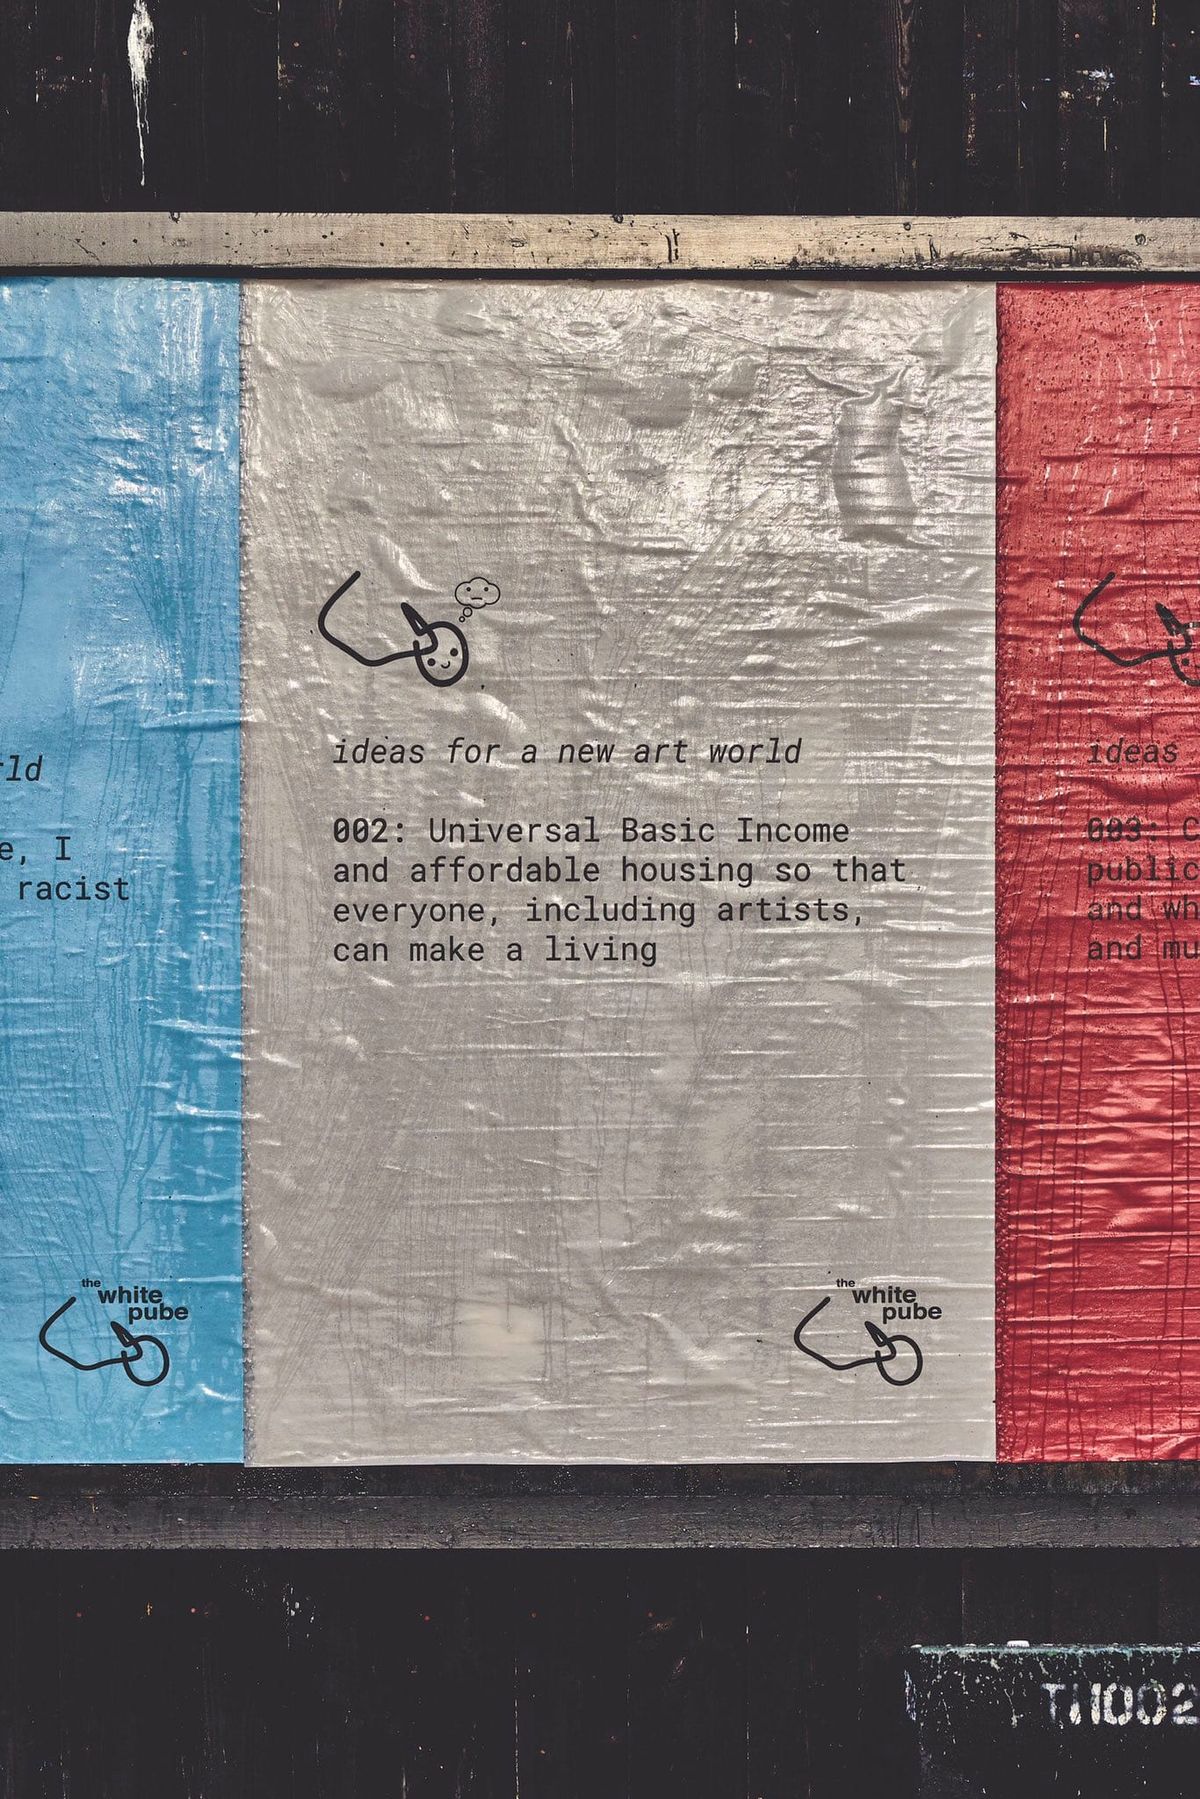 rld
e, I
racist
the
white
pube
ideas for a new art world
002: Universal Basic Income
and affordable housing so that
everyone, including artists,
can make a living
the
white
pube
ideas
003:
public
and wh
and mu
TH002